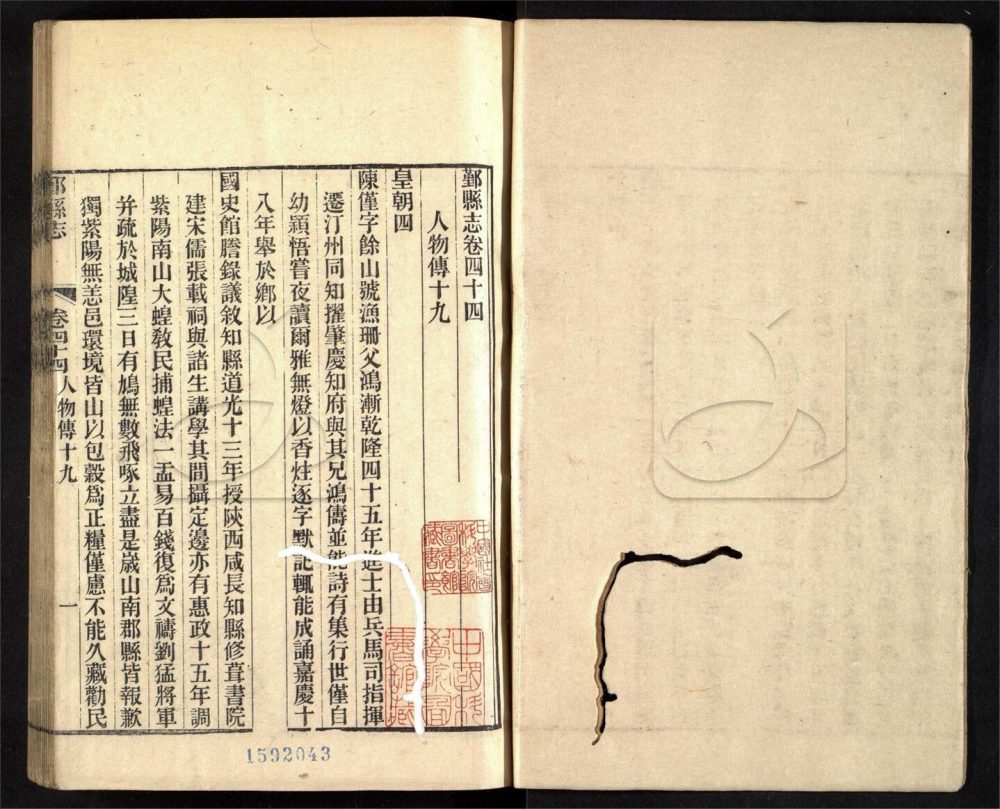 鄞縣志卷四十四
人物傳十九
皇朝四
陳僅字餘山號漁珊父鴻漸乾隆四十五年進士由兵馬司指揮
遷汀州同知擢肇慶知府與其兄鴻儔並能詩有集行世僅自
幼穎悟嘗夜讀爾雅無燈以香炷逐字默記輒能成誦嘉慶十
八年舉於鄉以
國史館謄錄議敘知縣道光十三年授陝西咸長知縣修葺書院
建宋儒張載祠與諸生講學其間攝定邊亦有惠政十五年調
紫陽南山大蝗敎民捕蝗法一盂易百錢復爲文禱劉猛將軍
并疏於城隍三日有鳩無數飛啄立盡是歲山南郡縣皆報歉
獨紫陽無恙邑環境皆山以包穀爲正糧僅慮不能久藏勸民
縣志
卷四十四
人物傳十九
一
1592043